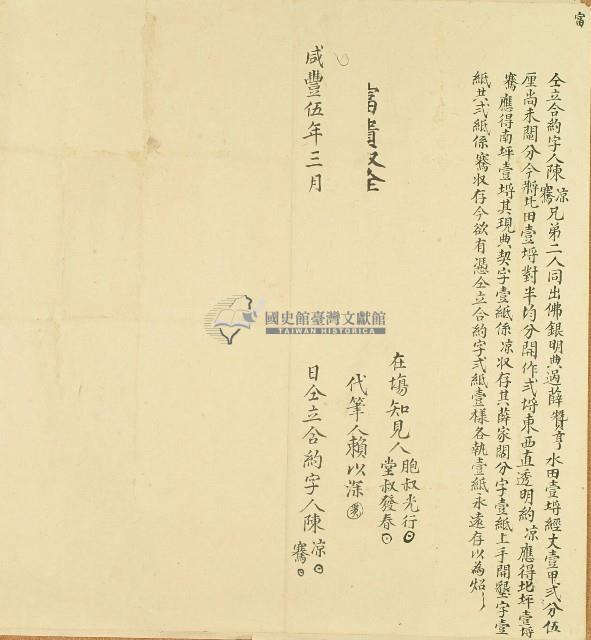 富
仝立合約字人陳凉騫兄弟二人同出佛銀明典過薛贊亨水田壹埒經丈壹甲弍分伍
厘尚未鬮分今將此田壹埒對半均分開作弍埒東西直透明約凉應得北坪壹埒
騫應得南坪壹埒其現典契字壹紙係凉收存其薛家鬮分字壹紙上手開墾字壹
紙共弍紙係騫收存今欲有憑仝立合約字弍紙壹樣各執壹紙永遠存以為炤
在塲知見人胞叔光行
堂叔發春
富貴双全
代筆人賴以深
咸豐伍年三月 日仝立合約字人陳凉
騫
國史館臺灣文獻館
TAIWAN HISTORICA